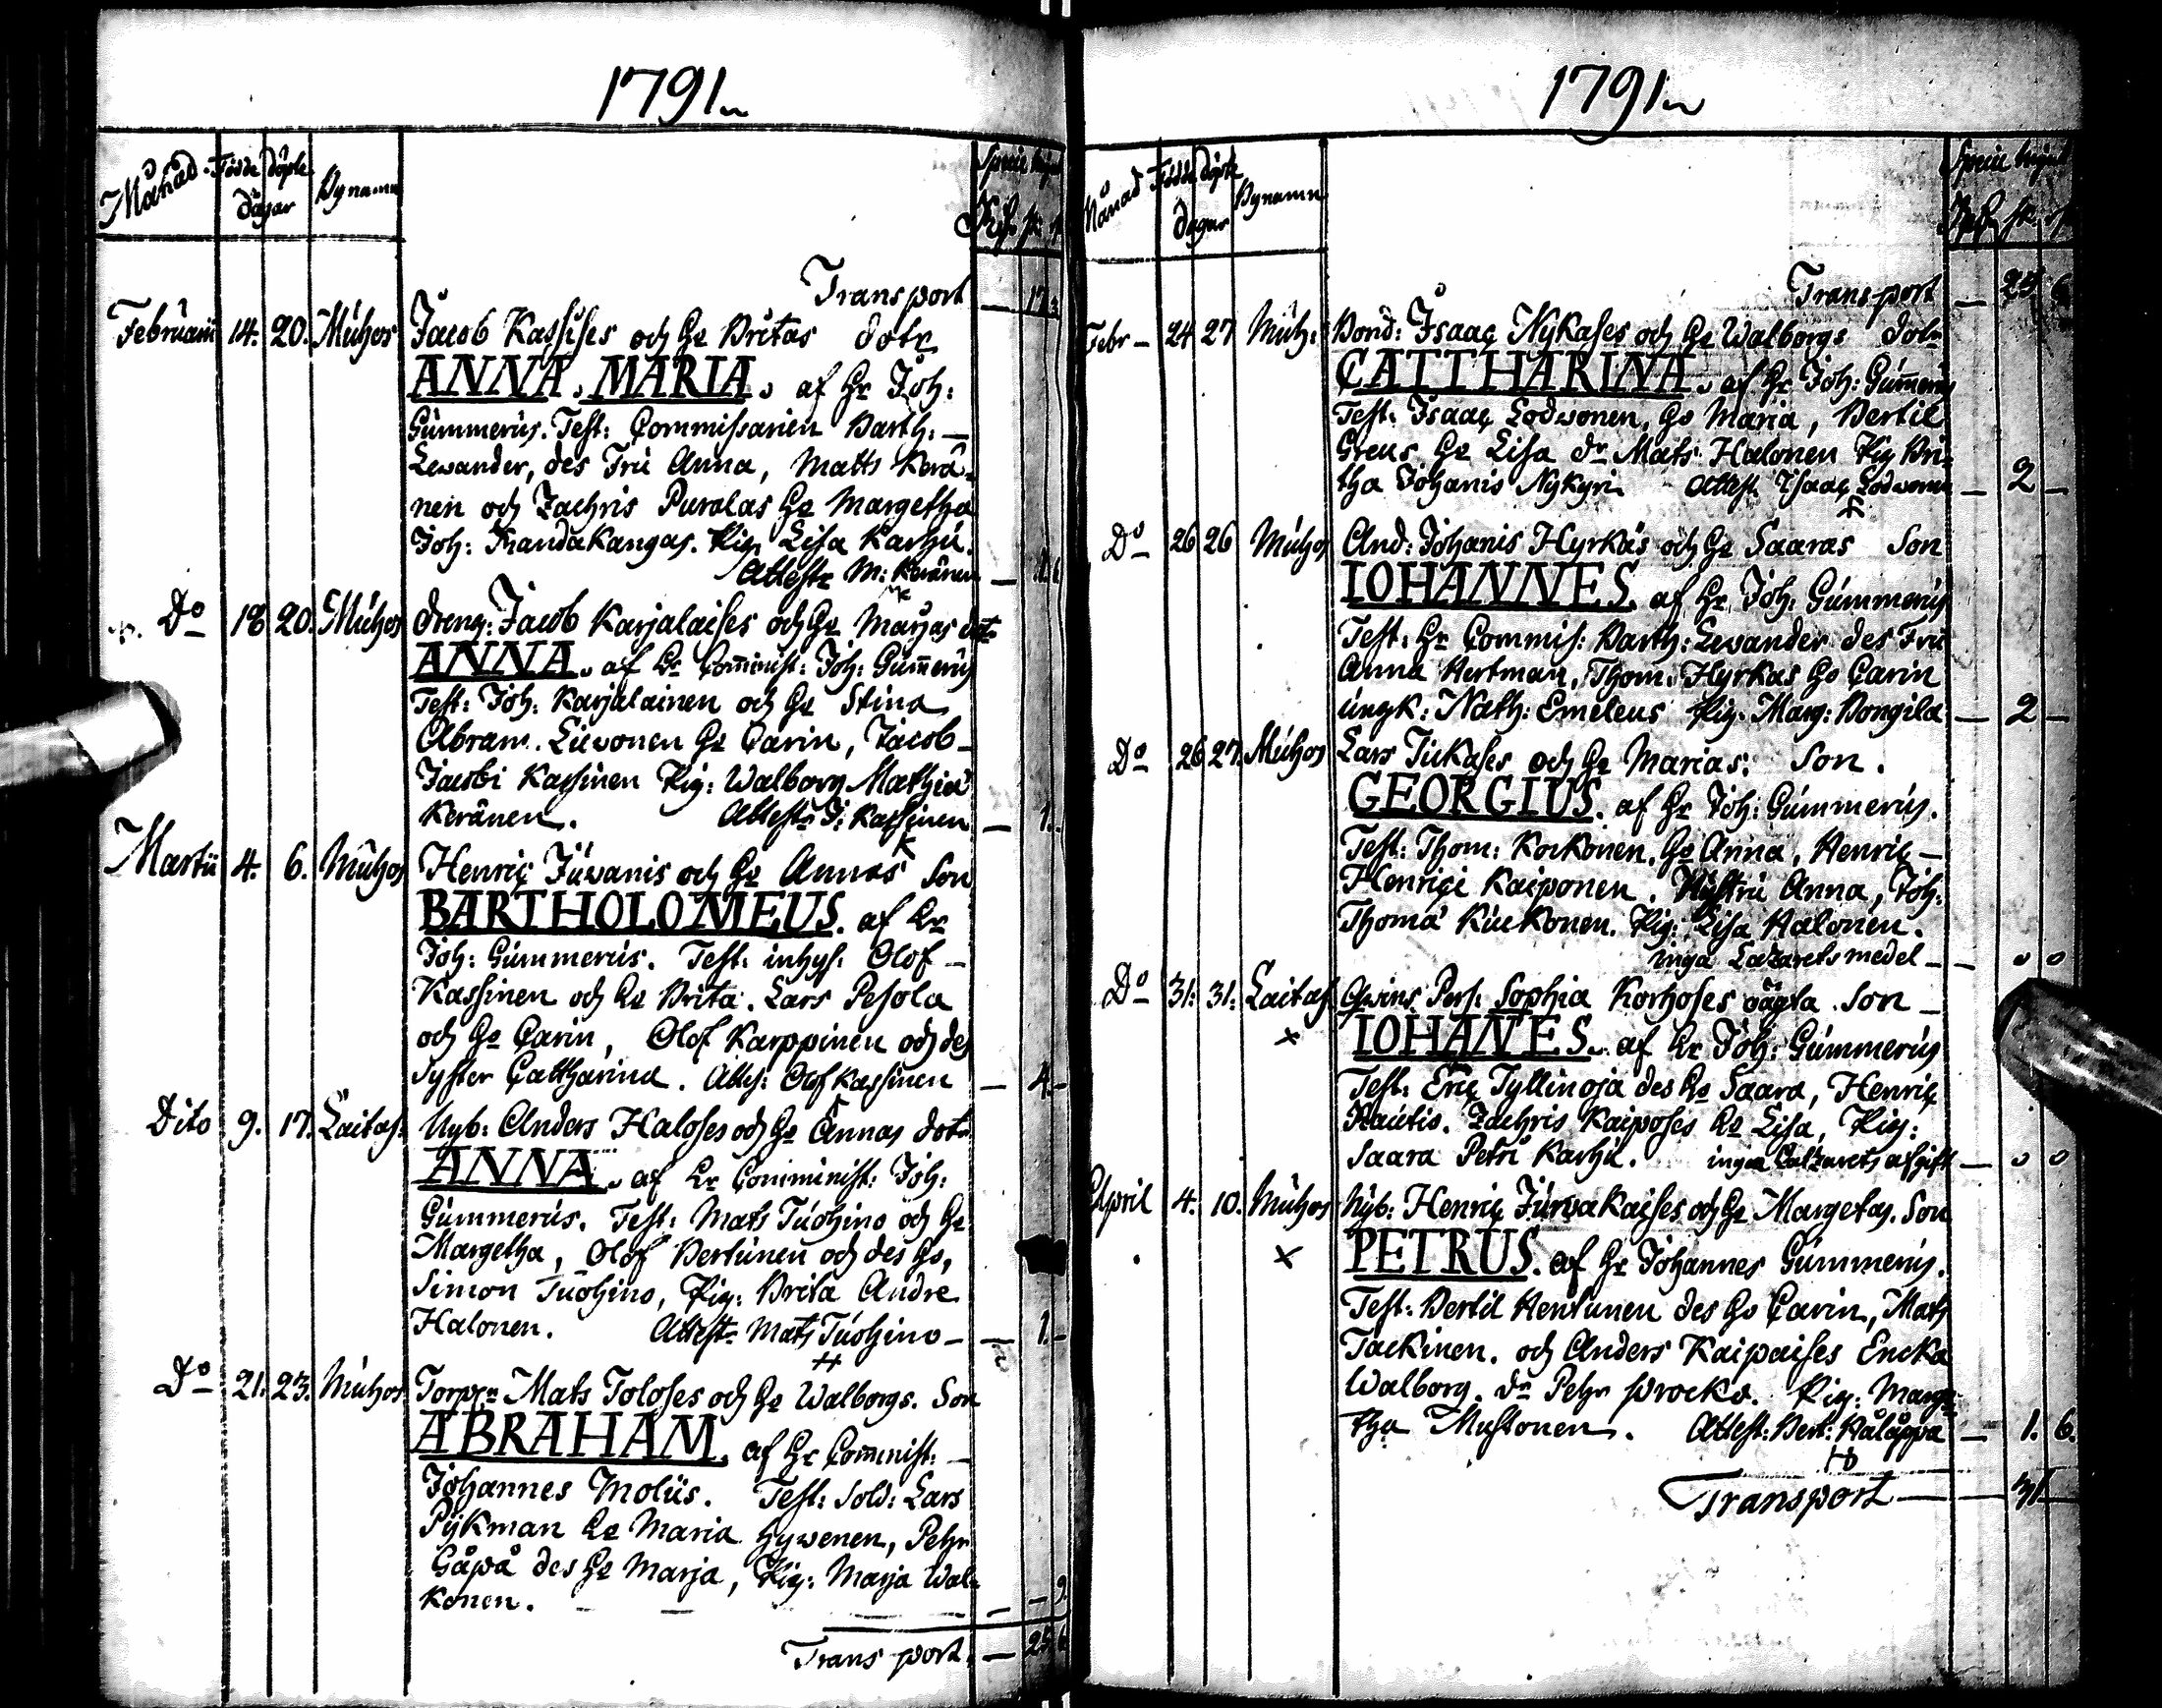 1791
Månad. Födde döpte Bynamn
dagar
Transport
Februarii 14. 20. Muhos Jacob Kassises och Hu Britas dotr
ANNA. MARIA. af Hr Joh:
Gummerus. Test: Commissarien Barth:
Lewander, des Fru Anna, Matts Kerä-
nen och Zachris Puralas Hu Margetha
Joh: Frandakangas. Pig Lisa Karhu.
Attestr M: Keränen
Do 18 20. Muhos Dreng: Jacob Karjalaises och Hu Marjas dotr
ANNA. af Hr Comminist: Joh: Gummerus
Test: Joh: Karjalainen och Hu Stina
Abram. Liewonen Hu Carin, Jacob
Jacobi Kassinen Pig: Walborg Mathiæ
Keränen. Attestr J: Kassinen 1.
Martii 4. 6. Muhos Henric Juwanis och Hu Annas Son
BARTHOLOMEUS. af Hr
Joh: Gummerus. Test: inhys: Olof
Kassinen och Hu Brita. Lars Pesola
och Hu Carin, Olof Karppinen och des
Syster Cattharina. Attes: Olof Kassinen 4
Dito 9. 17. Laitas: Nyb: Anders Haloses och Hu Annas dotr
ANNA. af Hr Comminist: Joh:
Gummerus. Test: Mats Tuohino och Hu
Margetha, Olof Pertunen och des Hu,
Simon Tuohino, Pig: Brita Andre
Halonen. Attestr Mats Tuohino 1.
Do 21. 23. Muhos Torpn Mats Toloses och Hu Walborgs. Son
ABRAHAM. af Hr Commist:
Johannes Molius. Test: Sold: Lars
Pijkman Hu Maria Hywenen, Pehr
Gåpå des Hu Marja, Pig: Marja Wal-
konen. 9.
Transport. 25
1791
Månad Födde döpte Bynamn
dagar
Transport 25 6
Febr 24 27 Muh: Bond: Isaac Nykases och Hu Walborgs Dotr
CATTHARINA. af Hr Joh: Gummerus
Test: Isaac Lodwonen, Hu Maria, Bertil
Greus Hu Lisa dr Mats Halonen Pig Bri-
tha Johanis Nykyri Attest Isaac Lodwonen 2
Do 26 26 Muhos And: Johanis Hyrkäs och Hu Saaras Son
IOHANNES. af Hr Joh: Gummerus
Test: Hr Commis: Barth: Lewander des Fru
Anna Hertman, Thom: Hyrkas Hu Carin
ungk: Nath: Emeleus Pig. Marg: Bongila 2
Do 26 27. Muhos Lars Tukases och Hu Marias: Son.
GEORGIUS. af Hr Joh: Gummerus.
Test: Thom: Korkonen. Hu Anna, Henric
Henrici Kaiponen. Hustru Anna, Joh:
Thomæ Kiukonen. Pig: Lisa Halonen.
inga Lazarets medel 0 0
Do 31. 31. Laitas Qwins Pers: Sophia Korhoses oägta Son
× IOHANES. af Hr Joh: Gummerus
Test: Eric Tyllinoja des Hu Saara, Henric
Rautio. Zachris Kaiposes Hu Lisa, Pig:
Saara Petri Karhu. inga Latzarets afgift 0 0
April 4. 10. Muhos Nyb: Henric Jurwakaises och Hu Margetas. Son
× PETRUS. af Hr Johannes Gummerus.
Test: Bertil Hentunen des Hu Carin, Mats
Tackinen. och Anders Kaipaises Encka
Walborg. dr Pehr Procko. Pig: Marge-
tha Mustonen. Attest: Bert: Kålåppa 1. 6.
Transport 31